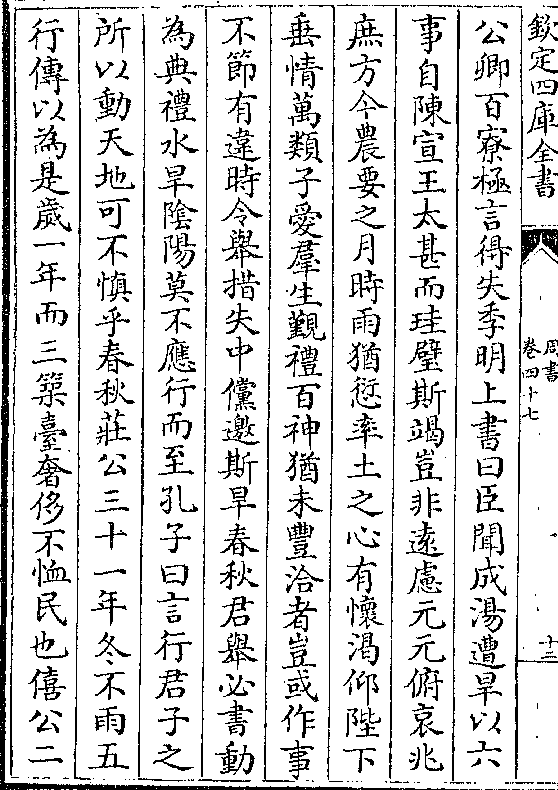 欽定四庫全書
周書
卷四十七
十三
公卿百寮極言得失季明上書曰臣聞成湯遭旱以六
事自陳宣王太甚而珪璧斯竭豈非遠慮元元俯哀兆
庶方今農要之月時雨猶愆率土之心有懷渴仰陛下
垂情萬類子愛羣生覲禮百神猶未豐洽者豈或作事
不節有違時令舉措失中儻邀斯旱春秋君舉必書動
為典禮水旱陰陽莫不應行而至孔子曰言行君子之
所以動天地可不慎乎春秋莊公三十一年冬不雨五
行傳以為是歲一年而三築臺奢侈不恤民也僖公二